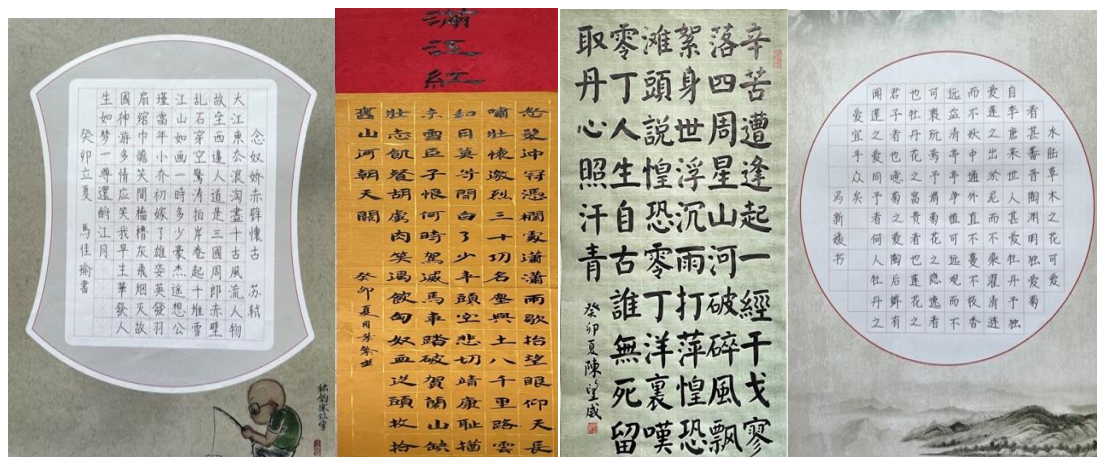 念奴娇赤壁懷古 苏轼
大江東去浪淘盡千古風流人物
故垒西邊人道是三國周郎赤壁
乱石穿空驚濤拍岸卷起千堆雪
江山如画一時多少豪杰遥想公
瑾當年小乔初嫁了雄姿英發羽
扇綸巾談笑間檣櫓灰飛烟灭故
國神游多情应笑我早生華發人
生如梦一尊還酹江月
癸卯立夏 馬佳瑜書
滿江紅
怒髮沖冠憑欄處瀟瀟雨歇抬望眼仰天長
嘯壯懷激烈三十功名塵與土八千里路雲
和月莫等閒白了少年頭空悲切靖康耻猶
未雪臣子恨何時駕滅馬車踏破賀蘭山缺
壯志飢餐胡虜肉笑渴飲匈奴血從頭收拾
舊山河朝天闕
癸卯夏月
辛苦遭逢起一經干戈寥
落四周星山河破碎風飄
絮身世浮沉雨打萍惶恐
滩頭說惶恐零丁洋裏嘆
零丁人生自古誰無死留
取丹心照汗青
癸卯夏陳望威
水陆草木之花可爱
者甚蕃晋陶渊明独爱菊
自李唐来世人甚爱牡丹予独
爱莲之出淤泥而不染濯清涟
而不妖中通外直不蔓不枝香
远益清亭亭净植可远观而不
可亵玩焉予谓菊花之隐逸者
也牡丹花之富贵者也莲花之
君子者也噫菊之爱陶后鲜有
闻莲之爱同予者何人牡丹之
爱宜乎众矣
冯新媛书